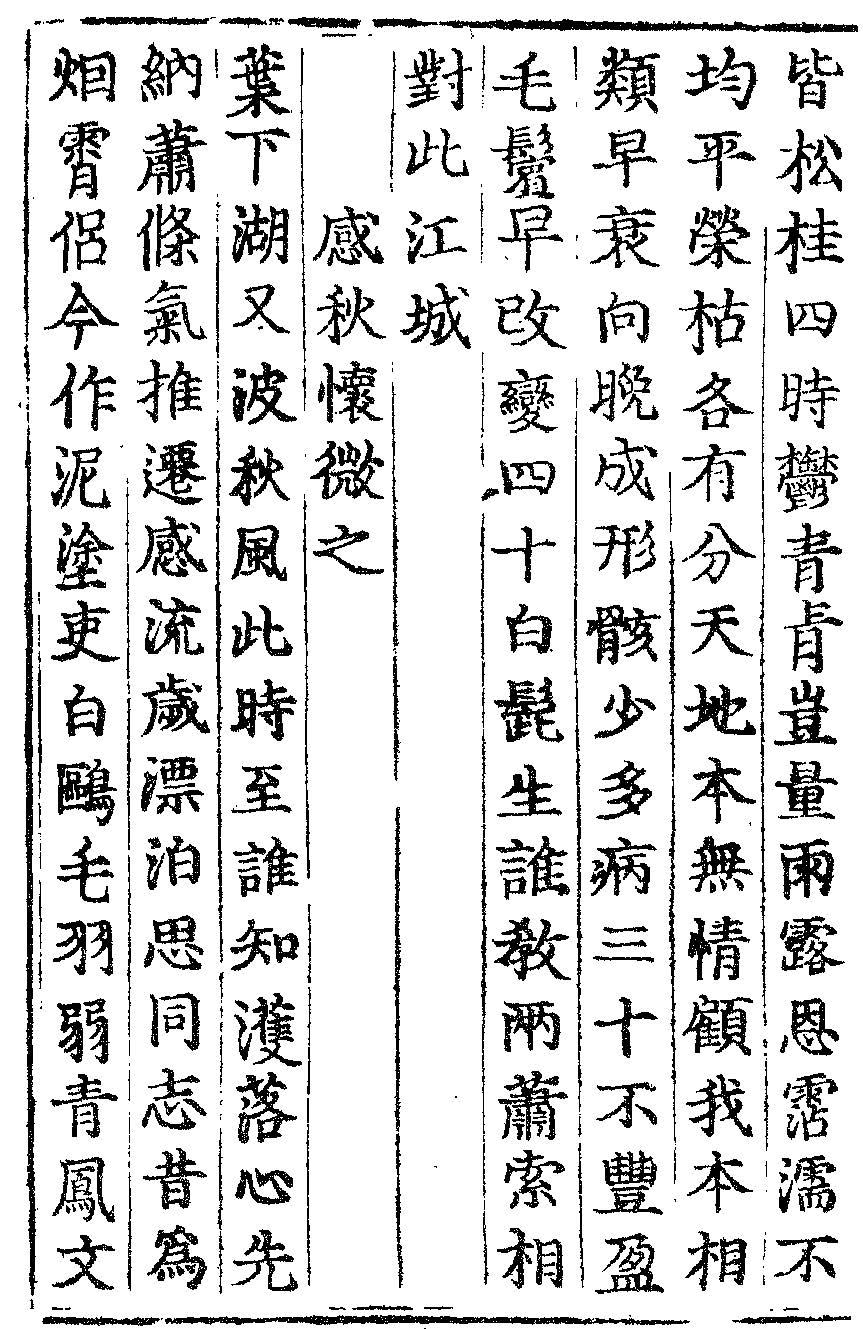 皆松桂四時鬱青青豈量雨露恩霑濡不
均平榮枯各有分天地本無情顧我本相
類早衰向晩成形骸少多病三十不豐盈
毛鬢早改變四十白髭生誰教兩蕭索相
對此江城
感秋懷微之
葉下湖又波秋風此時至誰知濩落心先
納蕭條氣推遷感流歲漂泊思同志昔爲
烟霄侣今作泥塗吏白鷗毛羽弱青鳳文